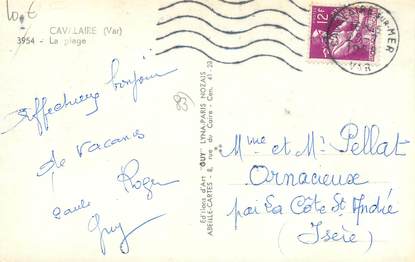 10€
CAVALAIRE (Var)
3954 - La plage
12F
SUR-MER
VAR
Affectueux bonjour
de vacances
Roger
Guy
(83)
Editions d'Art "GUY" LYNA-PARIS NOZAIS
ABEILLE-CARTES - 8, rue du Caire - Cen. 41-23
Mme et Mr Pellat
Ornacieux
par La Côte St André
(Isère)